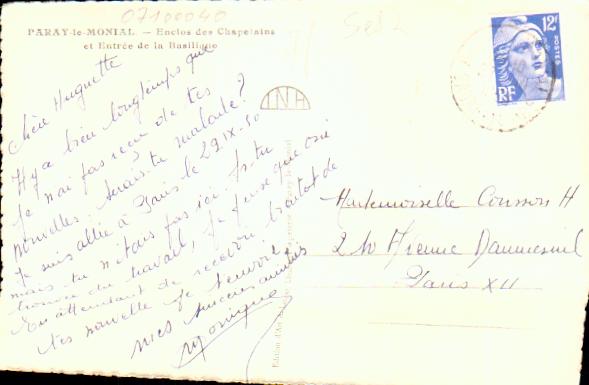 07100040
PARAY-le-MONIAL. — Enclos des Chapelains
et Entrée de la Basilique
12F
POSTES
RF
INH
Chère Huguette
Il y a bien longtemps que
je n'ai pas reçu de tes
nouvelles. Serais-tu malade?
Je suis allée à Paris le 29.IX.50
mais tu n'étais pas ici. As-tu
trouvé du travail, je pense que oui
En attendant de recevoir bientôt de
tes nouvelle je t'envoie
mes
Monique
Mademoiselle Cousson H
210 Avenue Daumesnil
Paris XII